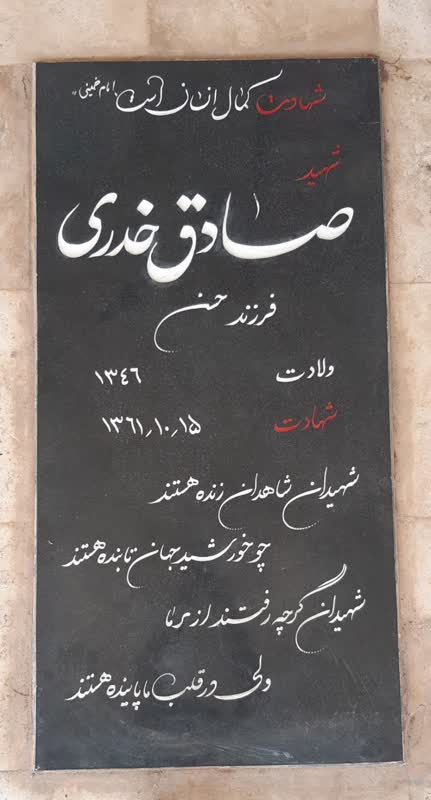 شهادت کمال انسان است "امام خمینی"
شهید
صادق خدری
فرزند حسن
ولادت ١٣٤٦
شهادت ١٣٦١٫١٠٫١٥
شهیدان شاهدان زنده هستند
چو خورشید جهان تابنده هستند
شهیدان گرچه رفتند از بر ما
ولی در قلب ما پاینده هستند